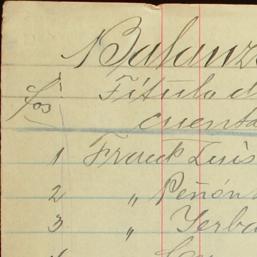 Balanz
f/os Título d
cuenta
1 Franck Luis
2 " Peñón
3 " Yerba